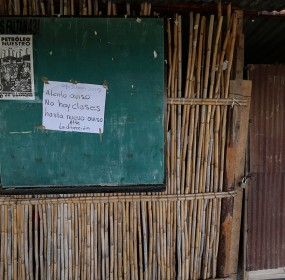 PETRÓLEO
NUESTRO
Atento aviso
No hay clases
hasta nuevo aviso
Atte
La dirección